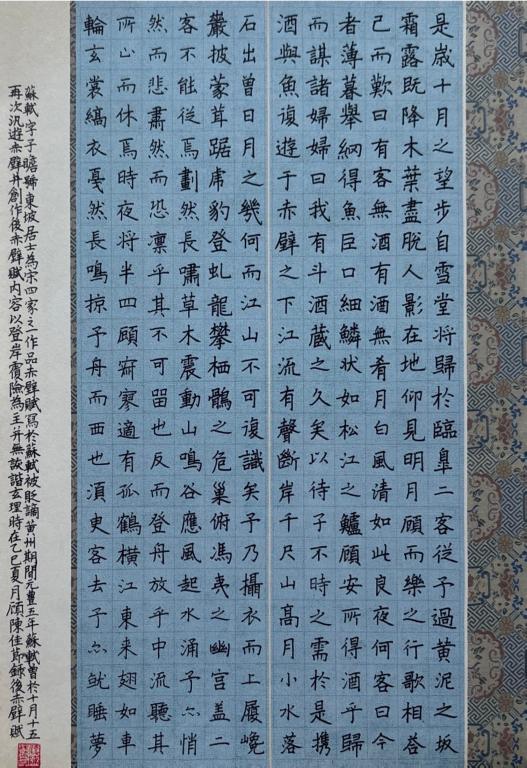 是歲十月之望步自雪堂將歸於臨皋二客從予過黃泥之坂
霜露既降木葉盡脫人影在地仰見明月顧而樂之行歌相答
已而歎曰有客無酒有酒無肴月白風清如此良夜何客曰今
者薄暮舉網得魚巨口細鱗狀如松江之鱸顧安所得酒乎歸
而謀諸婦婦曰我有斗酒藏之久矣以待子不時之需於是携
酒與魚復遊于赤壁之下江流有聲斷岸千尺山高月小水落
石出曾日月之幾何而江山不可復識矣予乃攝衣而上履巉
巖披蒙茸踞虎豹登虬龍攀栖鶻之危巢俯馮夷之幽宮盖二
客不能從焉劃然長嘯草木震動山鳴谷應風起水涌予亦悄
然而悲肅然而恐凛乎其不可留也反而登舟放乎中流聽其
所止而休焉時夜將半四顧寂寥適有孤鶴橫江東来翅如車
輪玄裳縞衣戛然長鳴掠予舟而西也湏臾客去予亦就睡夢
蘇軾字子瞻號東坡居士為宋四家之一作品赤壁賦寫於蘇軾被貶謫黃州期間元豐五年蘇軾曾於十月十五
再次汎遊赤壁并創作後赤壁賦內容以登岸履險為主并無談諧玄理時在乙巳夏月顧陳佳節錄後赤壁賦